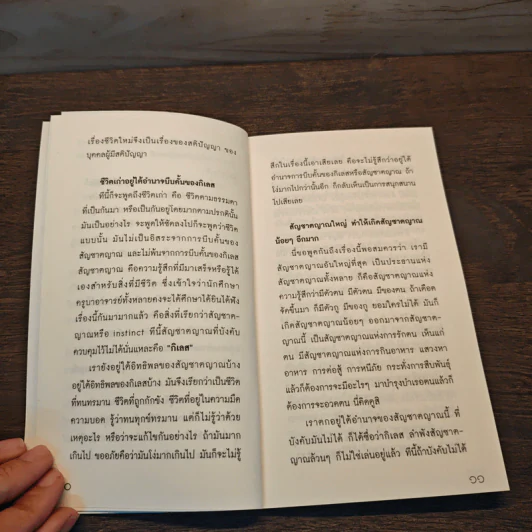 เรื่องชีวิตใหม่จึงเป็นเรื่องของสติปัญญา ของ
บุคคลผู้มีสติปัญญา
ชีวิตเก่าอยู่ใต้อำนาจบีบคั้นของกิเลส
ทีนี้ก็จะพูดถึงชีวิตเก่า คือ ชีวิตตามธรรมดา
ที่เป็นกันมา หรือเป็นกันอยู่โดยมากตามปรกตินั้น
มันเป็นอย่างไร จะพูดให้ชัดลงไปก็จะพูดว่าชีวิต
แบบนั้น มันไม่เป็นอิสระจากการบีบคั้นของ
สัญชาตญาณ และไม่พ้นจากการบีบคั้นของกิเลส
สัญชาตญาณ คือความรู้สึกที่มีมาเสร็จหรือรู้ได้
เองสำหรับสิ่งที่มีชีวิต ซึ่งเข้าใจว่านักศึกษา
ครูบาอาจารย์ทั้งหลายคงจะได้ศึกษาได้ยินได้ฟัง
เรื่องนี้กันมามากแล้ว คือสิ่งที่เรียกว่าสัญชาต-
ญาณหรือ instinct ทีนี้สัญชาตญาณที่บังคับ
ควบคุมไว้ไม่ได้นั่นแหละคือ "กิเลส"
เรายังอยู่ใต้อิทธิพลของสัญชาตญาณบ้าง
อยู่ใต้อิทธิพลของกิเลสบ้าง มันจึงเรียกว่าเป็นชีวิต
ที่ทนทรมาน ชีวิตที่ถูกกักขัง ชีวิตที่อยู่ในความมืด
ความบอด รู้ว่าทนทุกข์ทรมาน แต่ก็ไม่รู้ว่าด้วย
เหตุอะไร หรือว่าจะแก้ไขกันอย่างไร ถ้ามันมาก
เกินไป ขออภัยคือว่ามันโง่มากเกินไป มันก็จะไม่รู้
สึกในเรื่องนี้เอาเสียเลย คือจะไม่รู้สึกว่าอยู่ใต้
อำนาจการบีบคั้นของกิเลสหรือสัญชาตญาณ ถ้า
โง่มากไปกว่านั้นอีก ก็กลับเห็นเป็นการสนุกสนาน
ไปเสียเลย
สัญชาตญาณใหญ่ ทำให้เกิดสัญชาตญาณ
น้อยๆ อีกมาก
นี่ขอพูดกันถึงเรื่องนี้พอสมควรว่า เรามี
สัญชาตญาณอันใหญ่ที่สุด เป็นประธานแห่ง
สัญชาตญาณทั้งหลาย ก็คือสัญชาตญาณแห่ง
ความรู้สึกว่ามีตัวตน มีตัวตน มีของตน ถ้าเดือด
จัดขึ้นมา ก็มีตัวกู มีของกู ยอมใครไม่ได้ มันก็
เกิดสัญชาตญาณน้อยๆ ออกมาจากสัญชาต-
ญาณนี้ เป็นสัญชาตญาณแห่งการรักตน เห็นแก่
ตน มีสัญชาตญาณแห่งการกินอาหาร แสวงหา
อาหาร การต่อสู้ การหนีภัย กระทั่งการสืบพันธุ์
แล้วก็ต้องการจะมีอะไรๆ มาบำรุงบำเรอตนแล้วก็
ต้องการจะอวดตน นี่คิดดูสิ
เราตกอยู่ใต้อำนาจของสัญชาตญาณนี้ ที่
บังคับมันไม่ได้ ก็ได้ชื่อว่ากิเลส ลำพังสัญชาต-
ญาณล้วนๆ ก็ไม่ใช่เล่นอยู่แล้ว ทีนี้ถ้าบังคับไม่ได้
๑๑